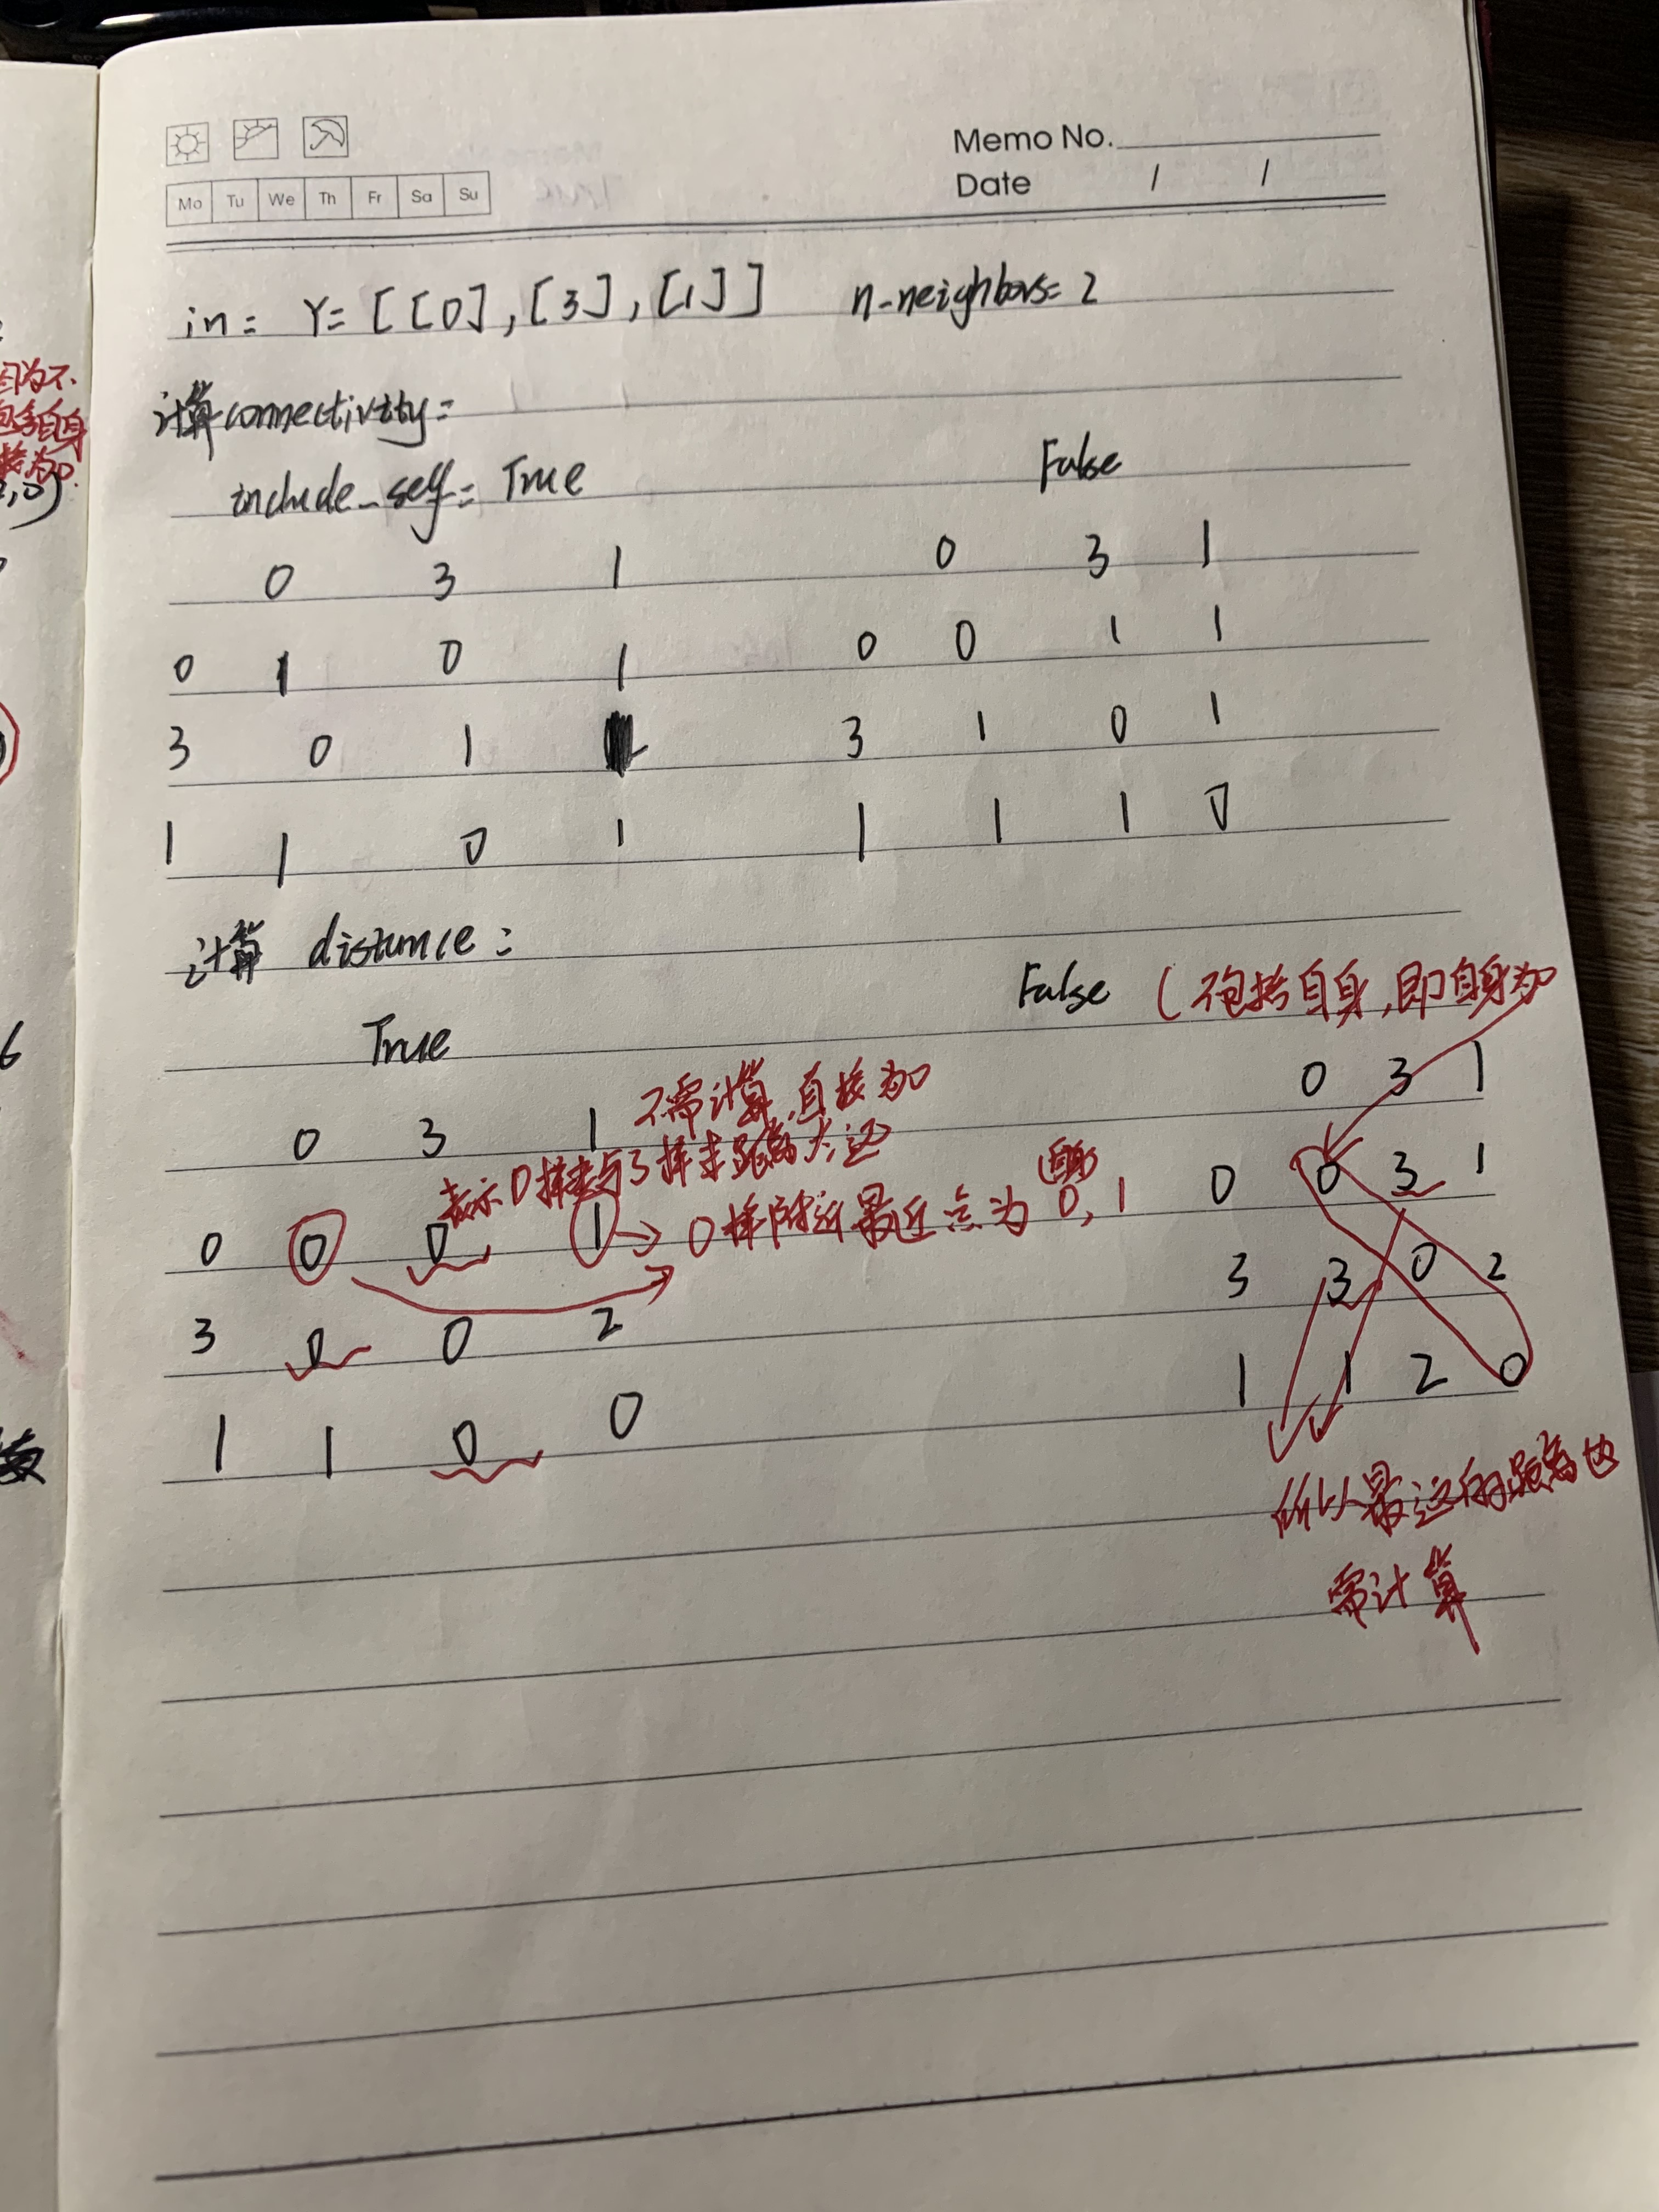 Memo No.
Date / /
Mo Tu We Th Fr Sa Su
in: Y=[[0],[3],[1]] n-neighbors=2
计算connectivity:
include_self= True False
0 3 1 0 3 1
0 1 0 1 0 0 1 1
3 0 1 3 1 0 1
1 1 0 1 1 1 1 0
计算 distance:
False (不包括自身,即自身为0
True
0 3 1 不需计算,直接为0 0 3 1
表示0样本与3样本距离太远
0 0 0 1 → 0样附近最近点为0,1 0 0 3 1
3 0 0 2 3 3 0 2
1 1 0 0 1 1 2 0
所以最远的距离也
需计算
因为不
包含自身